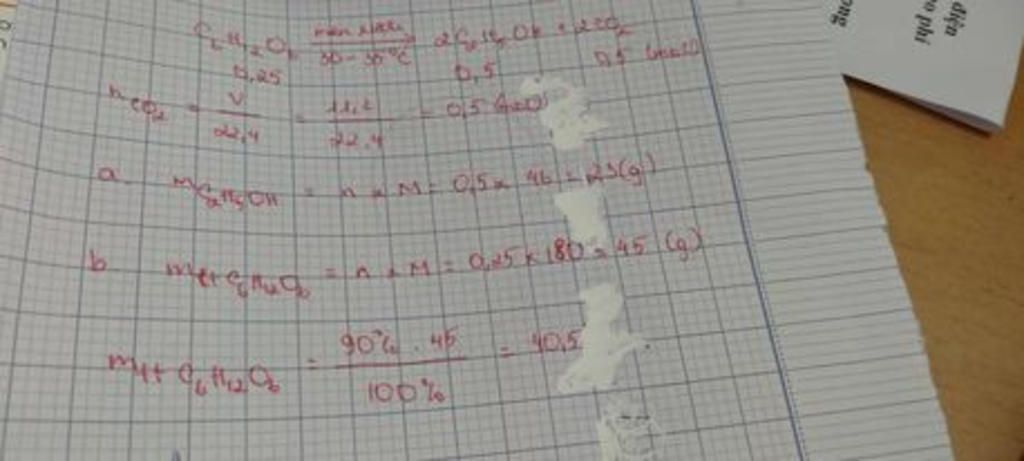 C₆H₁₂O₆ men rượu 30-35°C 2C₂H₅OH + 2CO₂
0,25 0,5 0,5 (mol)
nCO₂ = V/22,4 = 11,2/22,4 = 0,5 (mol)
a. mC₂H₅OH = n x M = 0,5 x 46 = 23(g)
b mtt C₆H₁₂O₆ = n x M = 0,25 x 180 = 45 (g)
mtt C₆H₁₂O₆ = 90% . 45 / 100% = 40,5
ong
điện
phí